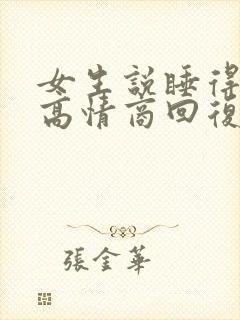 女生說睡得
高情商回復
張金華